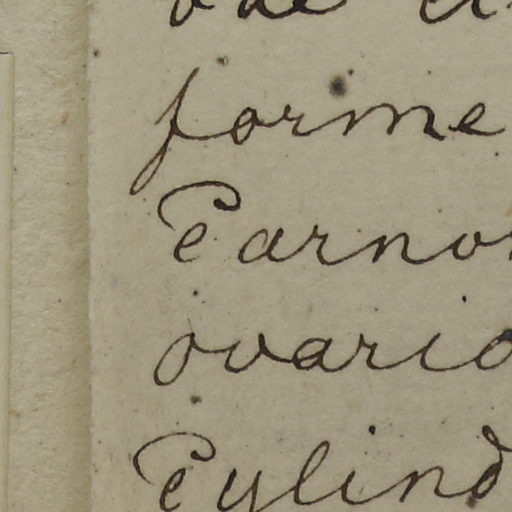 forme
Carno
ovario
Cylind